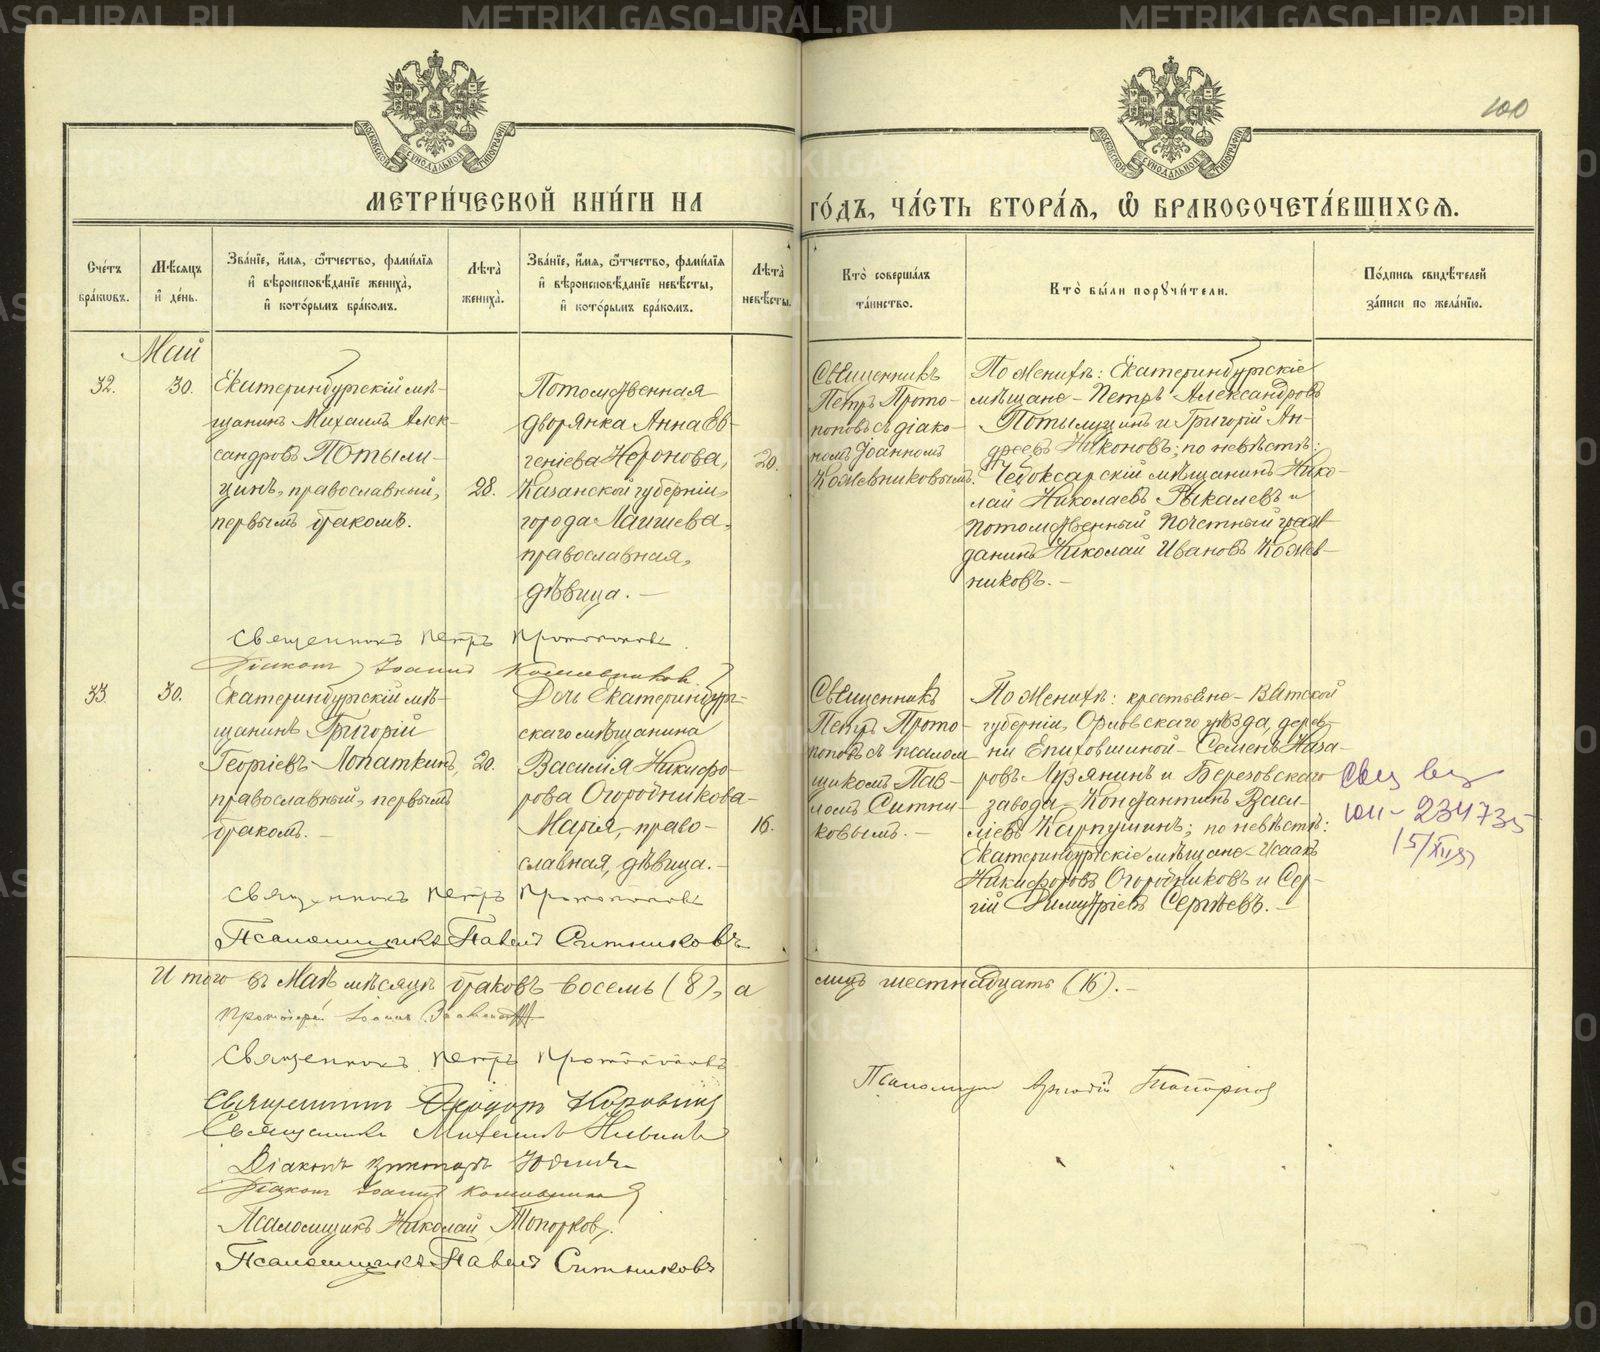 100
МОСКОВСКОЙ СѴНОДАЛЬНОЙ ТИПОГРАФІИ
МОСКОВСКОЙ СѴНОДАЛЬНОЙ ТИПОГРАФІИ
МЕТРИ́ЧЕСКОЙ КНИ́ГИ НА
ГО́ДЪ, ЧА́СТЬ ВТОРА́Я, Ѿ БРАКОСОЧЕТА́ВШИХСЯ.
Сче́тъ
бра́кѡвъ.
Мѣ́сяцъ
и҆ де́нь.
Зва́нїе, и҆́мя, ѻ҆́тчество, фами́лїя
и҆ вѣроисповѣ́данїе жениха̀,
и҆ кото́рымъ бра́комъ.
Лѣ́та
жениха̀.
Зва́нїе, и҆́мя, ѻ҆́тчество, фами́лїя
и҆ вѣроисповѣ́данїе невѣ́сты,
и҆ кото́рымъ бра́комъ.
Лѣ́та
невѣ́сты.
Кто̀ соверша́лъ
та́инство.
Кто̀ бы́ли порꙋчи́тели.
По́дпись свидѣ́телей
за́писи по жела́нїю.
Май
32.
30.
Екатеринбургскій мѣ-
щанинъ Михаилъ Алек-
сандровъ Потыли-
цинъ, православный,
первымъ бракомъ.
28.
Потомственная
дворянка Анна Ев-
геніева Неронова,
Казанской губерніи,
города Лаишева,
православная,
дѣвица. —
20.
Священникъ
Петръ Прото-
поповъ съ діако-
номъ Іоанномъ
Кожевниковымъ.
По женихѣ: Екатеринбургскіе
мѣщане – Петръ Александровъ
Потылицинъ и Григорій Ан-
дреевъ Никоновъ; по невѣстѣ:
Чебоксарскій мѣщанинъ Нико-
лай Николаевъ Рыкалевъ и
потомственный почетный граж-
данинъ Николай Ивановъ Кожев-
никовъ. —
Священникъ Петръ Протопоповъ
Діаконъ Іоаннъ Кожевниковъ
33
30.
Екатеринбургскій мѣ-
щанинъ Григорій
Георгіевъ Лопаткинъ,
православный, первымъ
бракомъ. —
20.
Дочь Екатеринбург-
скаго мѣщанина
Василія Никифо-
рова Огородникова –
Марія, право-
славная, дѣвица. —
16.
Священникъ
Петръ Прото-
поповъ съ псалом
щикомъ Пав-
ломъ Ситни-
ковымъ. —
По женихѣ: крестьяне – Вятской
губерніи, Орловскаго уѣзда, дерев-
ни Епиховшиной – Семенъ Наза-
ровъ Лузянинъ и Березовскаго
завода – Константинъ Васи-
ліевъ Карпушинъ; по невѣстѣ:
Екатеринбургскіе мѣщане – Исаакъ
Никифоровъ Огородниковъ и Сер-
гій Димитріевъ Сергѣевъ. —
234735
Священникъ Петръ Протопоповъ
Псаломщикъ Павелъ Ситниковъ
Итого въ Маѣ мѣсяцѣ браковъ восемь (8), а
лицъ шестнадцать (16). —
Протоіерей Іоаннъ
Священникъ Петръ Протопоповъ
Священникъ Ѳеодоръ Коровинъ
Священникъ Михаилъ
Діаконъ Викторъ Юдинъ
Діаконъ Іоаннъ Кожевниковъ
Псаломщикъ Николай Топорковъ.
Псаломщикъ Павелъ Ситниковъ
Псаломщикъ Топорковъ
METRIKI.GASO-URAL.RU